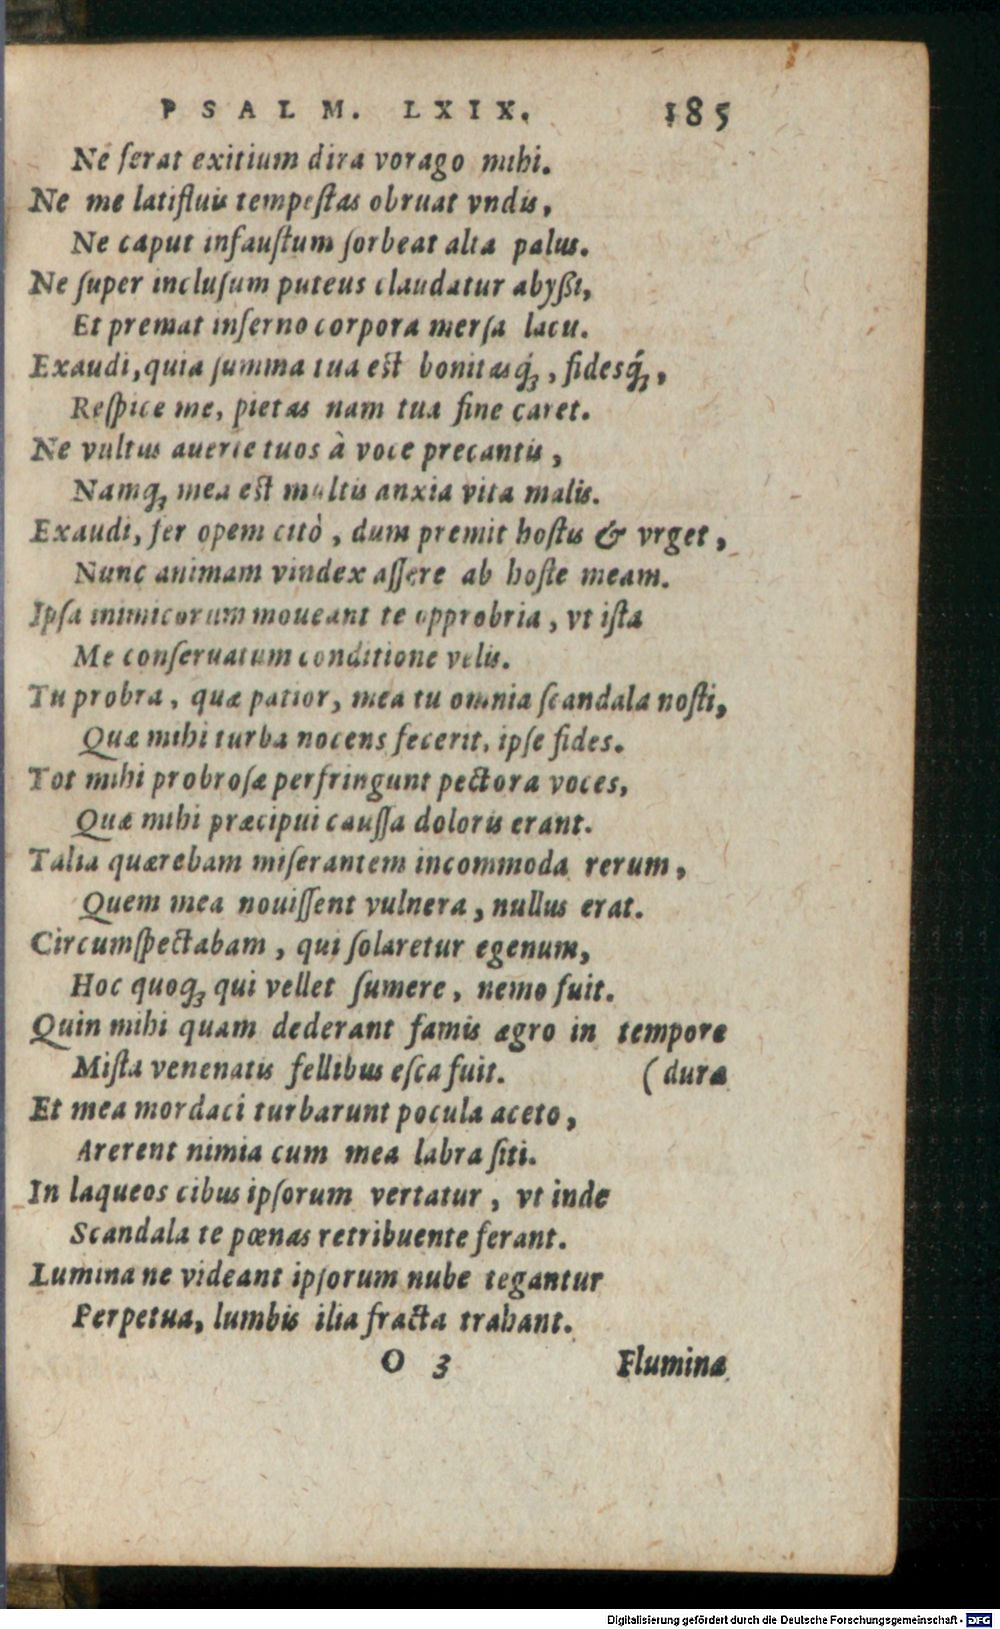 PSALM. LXIX. 185
Ne ferat exitium dira vorago mihi.
Ne me latifluis tempestas obruat vndis,
Ne caput infaustum sorbeat alta palus.
Ne super inclusum puteus claudatur abyßi,
Et premat inferno corpora mersa lacu.
Exaudi, quia summa tua est bonitasq́; , fidesq́; ,
Respice me, pietas nam tua fine caret.
Ne vultus auerte tuos à voce precantis,
Namq; mea est multis anxia vita malis.
Exaudi, fer opem citò, dum premit hostis & vrget,
Nunc animam vindex assere ab hoste meam.
Ipsa inimicorum moueant te opprobria, vt ista
Me conseruatum conditione velis.
Tu probra, quæ patior, mea tu omnia scandala nosti,
Quæ mihi turba nocens fecerit, ipse fides.
Tot mihi probrosæ perfringunt pectora voces,
Quæ mihi præcipui caussa doloris erant.
Talia quærebam miserantem incommoda rerum,
Quem mea nouissent vulnera, nullus erat.
Circumspectabam, qui solaretur egenum,
Hoc quoq; qui vellet sumere, nemo fuit.
Quin mihi quam dederant famis ægro in tempore
Mista venenatis fellibus esca fuit. (duræ
Et mea mordaci turbarunt pocula aceto,
Arerent nimia cum mea labra siti.
In laqueos cibus ipsorum vertatur, vt inde
Scandala te pœnas retribuente ferant.
Lumina ne videant ipsorum nube tegantur
Perpetua, lumbis ilia fracta trahant.
O 3 Flumina
Digitalisierung gefördert durch die Deutsche Forschungsgemeinschaft - DFG